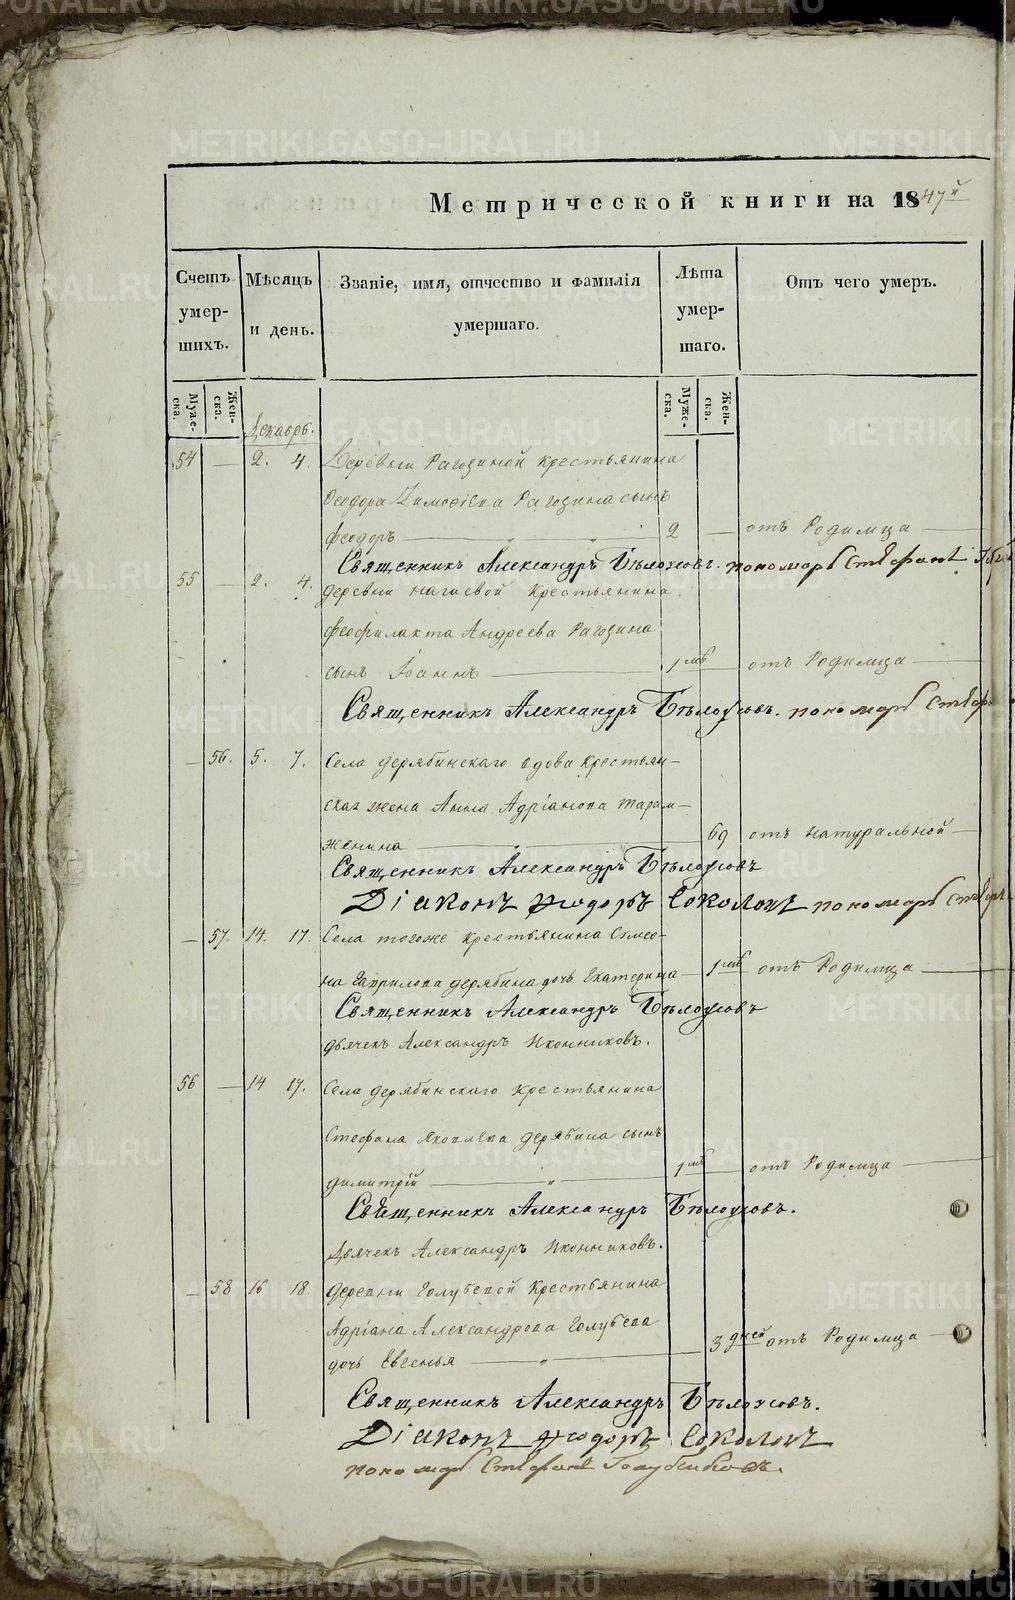 Метрической книги на 1847й
Счетъ умер- шихъ.
Мѣсяцъ и день.
Званіе, имя, отчество и фамилія умершаго.
Лѣта умер- шаго.
Отъ чего умеръ.
Муже- ска.
Жен- ска.
Муже- ска.
Жен- ска.
Декабрь.
54 — 2. 4. Деревни Рагозиной крестьянина
Феодора Тимофеева Рагозина сынъ
Феодоръ — " — " — 2 — отъ Родимца —
Священникъ Александръ Бѣлоусовъ. пономарь Стефанъ
55 — 2. 4. деревни Нагаевой крестьянина
Феофилакта Андреева Рагозина
сынъ Іоаннъ — 1 мѣ — отъ Родимца —
Священникъ Александръ Бѣлоусовъ. пономарь Стеф
— 56. 5. 7. Села Дерябинскаго вдова крестьян-
ская жена Анна Адріанова
женина — " — 69 отъ натуральной —
Священникъ Александръ Бѣлоусовъ
Діаконъ Феодоръ Соколовъ пономарь Стефа
— 57. 14. 17. Села тогоже крестьянина Симео-
на Гаврилова Дерябина дочь Екатерина — 1 мѣ отъ Родимца —
Священникъ Александръ Бѣлоусовъ
дьячекъ Александръ Иконниковъ.
56 — 14 17. Села Дерябинскаго крестьянина
Стефана Яковлева Дерябина сынъ
Димитрій — " — 1 мѣ — отъ Родимца —
Священникъ Александръ Бѣлоусовъ.
Дьячекъ Александръ Иконниковъ.
— 58 16 18. Деревни Голубевой крестьянина
Адріана Александрова Голубева
дочь Евгенья — " — 3 дней отъ Родимца —
Священникъ Александръ Бѣлоусовъ.
Діаконъ Феодоръ Соколовъ
пономарь Стефанъ Голубчиковъ.
METRIKI.GASO-URAL.RU